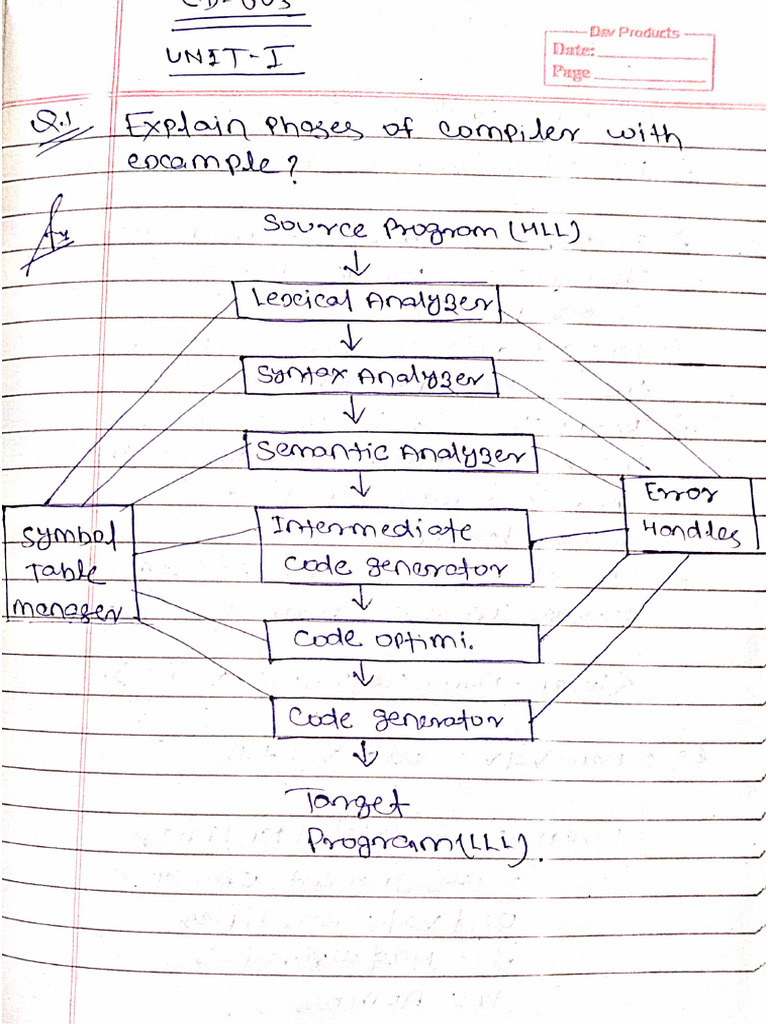 CD-603
UNIT-I
Dev Products
Date:
Page
Q.1 Explain phases of compiler with
example?
Source Program (HLL)
Lexical Analyzer
Syntax Analyzer
Semantic Analyzer
Error
Handles
Intermediate
code generator
Symbol
Table
manager
Code optimi.
Code generator
Target
Program (LLL).